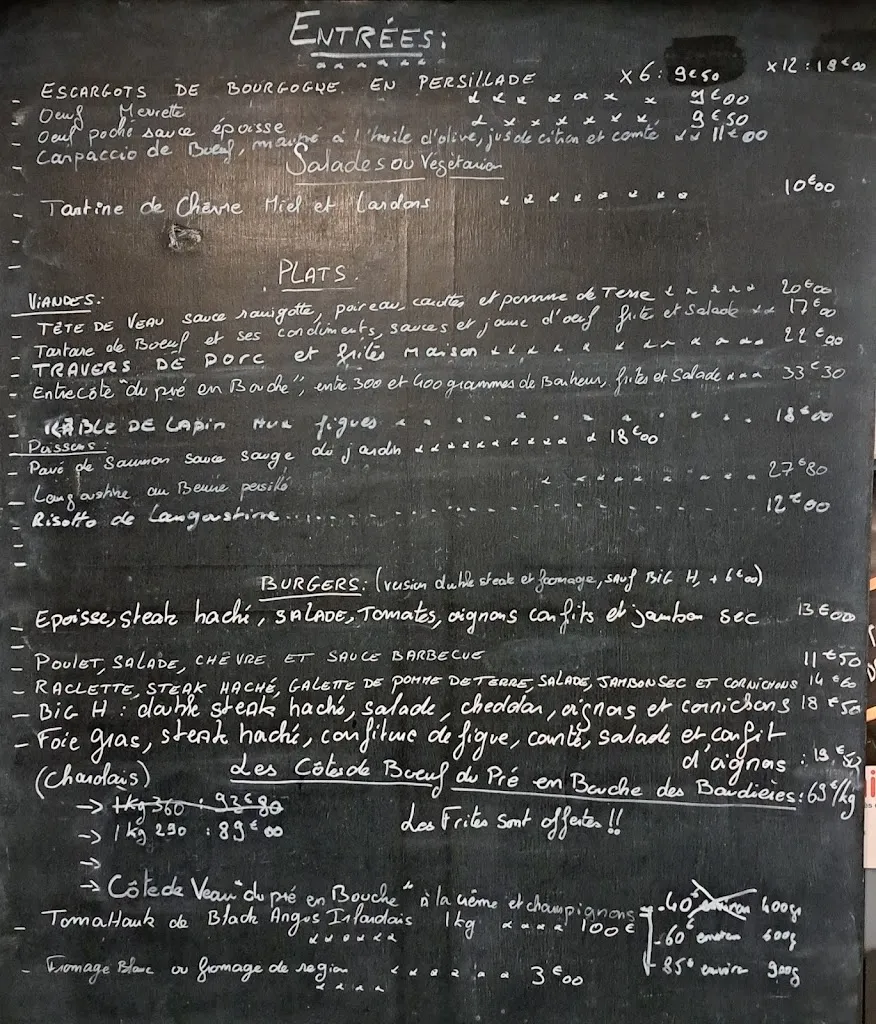 ENTRÉES:
- ESCARGOTS DE BOURGOGNE EN PERSILLADE x6: 9€50 x12: 18€00
- Oeuf Meurette 9€00
- Oeuf poché sauce époisse 9€50
- Carpaccio de Boeuf, mariné à l'huile d'olive, jus de citron et comté 11€00
Salades ou Vegetarien
- Tartine de Chèvre Miel et Lardons 10€00
PLATS.
VIANDES:
- TÊTE DE VEAU sauce ravigotte, poireau, carottes et pomme de Terre 20€00
- Tartare de Boeuf et ses condiments, sauces et jaune d'oeuf frites et Salade 17€00
- TRAVERS DE PORC et frites maison 22€00
- Entrecôte "du pré en Bouche", entre 300 et 400 grammes de Bonheur, frites et Salade 33€30
- RÂBLE DE LAPIN AUX figues 18€00
Poissons:
- Pavé de Saumon sauce sauge du jardin 18€00
- Langoustine au Beurre persillé 27€80
- Risotto de Langoustine 12€00
BURGERS: (version double steak et fromage, sauf BIG H, + 6€00)
- Epoisse, steak haché, SALADE, Tomates, oignons confits et jambon sec 13€00
- POULET, SALADE, CHÈVRE ET SAUCE BARBECUE 11€50
- RACLETTE, STEAK HACHÉ, GALETTE DE POMME DE TERRE, SALADE, JAMBON SEC ET CORNICHONS 14€60
- BIG H : double steak haché, salade, cheddar, oignons et cornichons 18€50
- Foie gras, steak haché, confiture de figue, comté, salade et confit
d'oignons :
(Charolais) Les Côtes de Boeuf du Pré en Bouche des Bardières: 69€/kg
-> 1kg 360 : 92€80
-> 1kg 290 : 89€00 Les Frites sont offertes !!
->
-> Côte de Veau "du pré en Bouche" à la crème et champignons - 40€ environ 400gr
- 60€ environ 600g
- 85€ environ 900g
- TomaHauk de Black Angus Irlandais 1kg 100€
- Fromage Blanc ou fromage de region 3€00